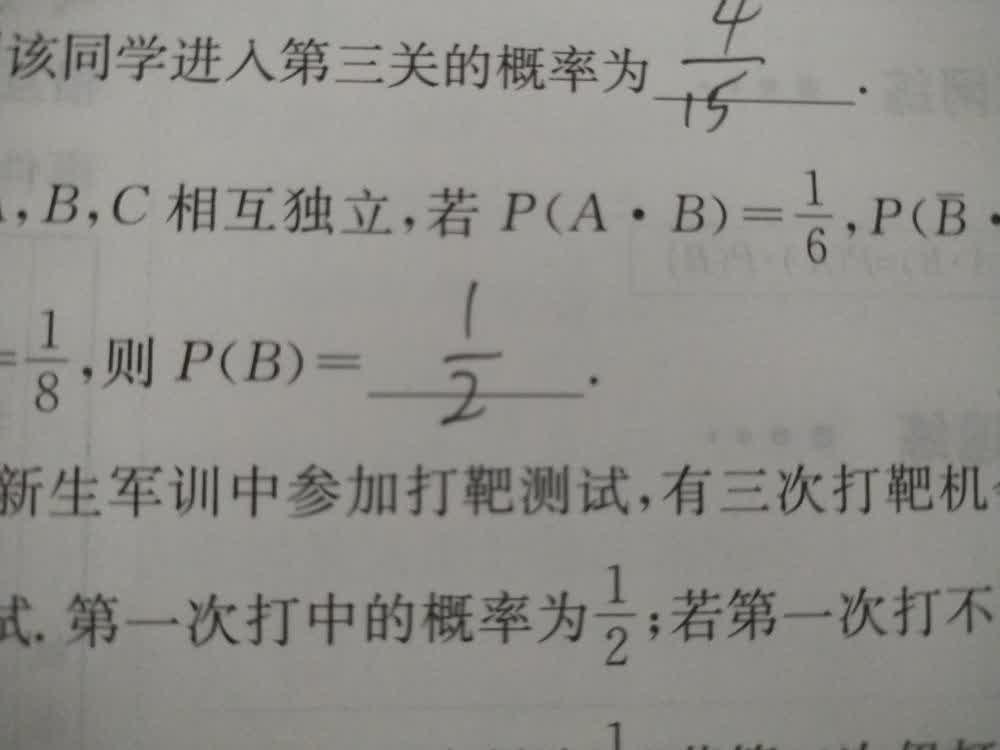 该同学进入第三关的概率为 4/15 .
,B,C 相互独立,若 P(A·B)=1/6,P(B̄·
=1/8,则 P(B)= 1/2 .
新生军训中参加打靶测试,有三次打靶机
试. 第一次打中的概率为1/2;若第一次打不